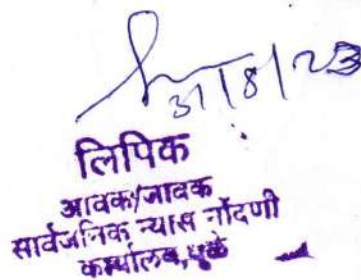 31/8/23
लिपिक
आवक/जावक
सार्वजनिक न्यास नोंदणी
कार्यालय, धुळे